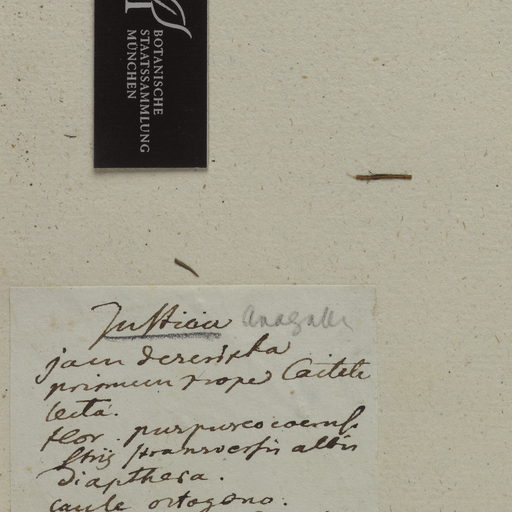 BOTANISCHE
STAATSSAMMLUNG
MÜNCHEN
Justicia Anagallis
jam descripta
primum prope Caitete
lecta.
flor. purpureocoerul.
striis transversis albis
diapthera.
caule ortogono.